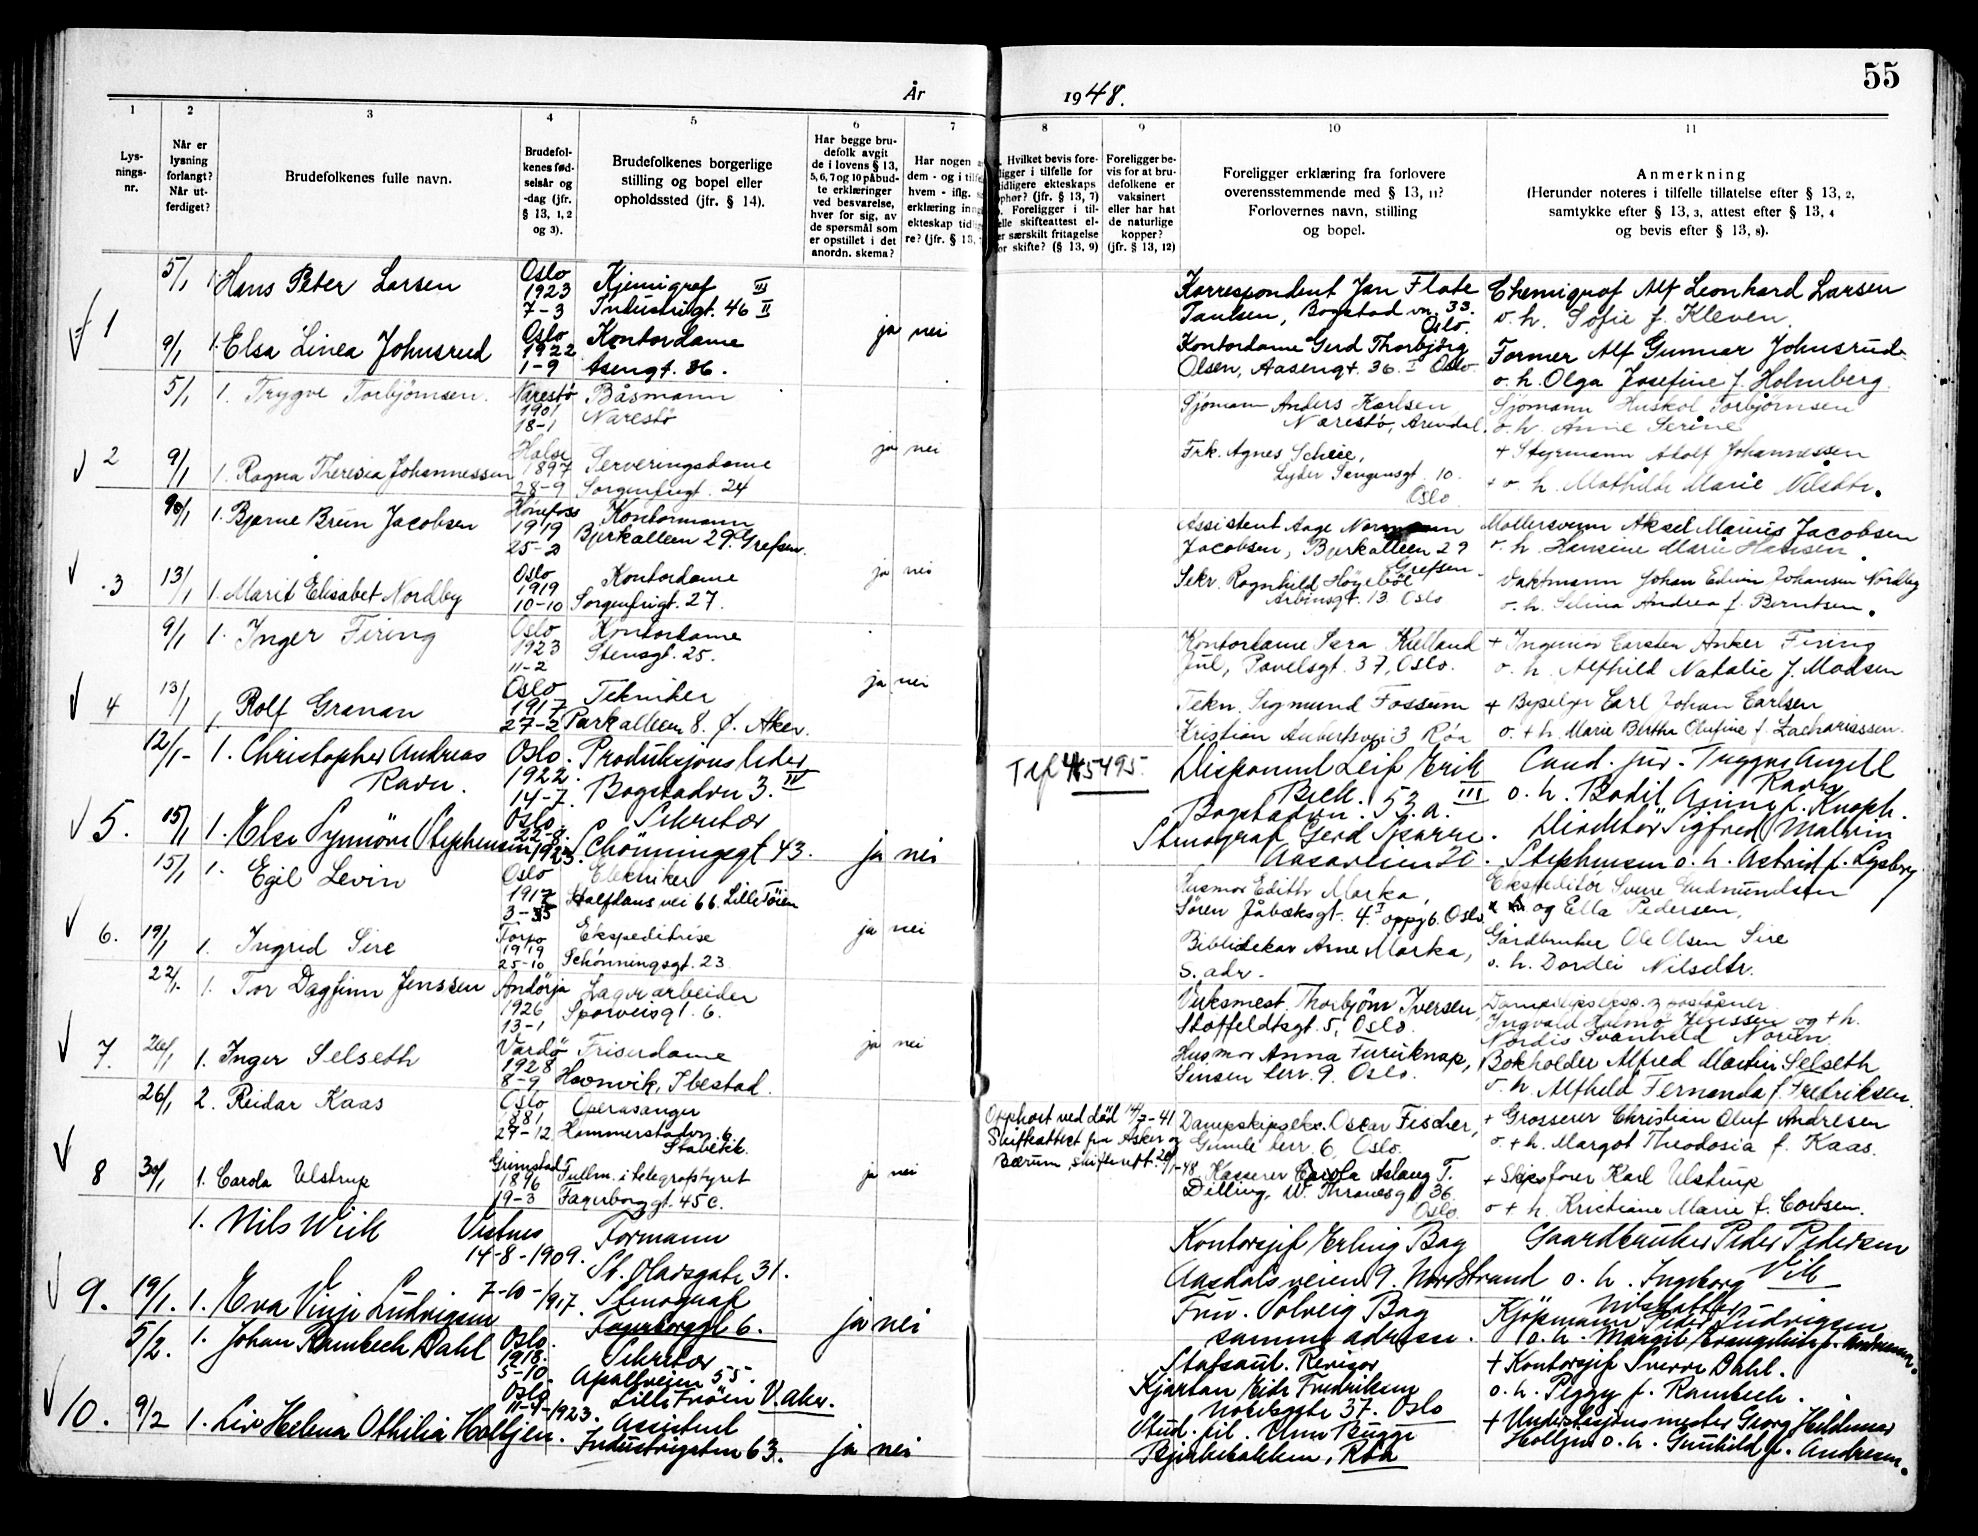 55
År 1948.
1 2 3 4 5 6 7 8 9 10 11
Lysningsnr.
Når er lysning forlangt? Når utferdiget?
Brudefolkenes fulle navn.
Brudefolkenes fødselsår og -dag (jfr. § 13, 1, 2 og 3).
Brudefolkenes borgerlige stilling og bopel eller opholdssted (jfr. § 14).
Har begge brudefolk avgit de i lovens § 13, 5, 6, 7 og 10 påbudte erklæringer ved besvarelse, hver for sig, av de spørsmål som er opstillet i det anordn. skema?
Har nogen
dem - og i
hvem - iflg.
erklæring
ekteskap
re? (jfr. § 13,
Hvilket bevis fore-
ligger i tilfelle for
tidligere ekteskaps
ophør? (jfr. § 13, 7)
Foreligger i til-
felle skifteattest el-
er særskilt fritagelse
for skifte? (§ 13, 9)
Foreligger bevis for at brudefolkene er vaksinert eller har hat de naturlige kopper? (jfr. § 13, 12)
Foreligger erklæring fra forlovere overensstemmende med § 13, 11? Forlovernes navn, stilling og bopel.
Anmerkning
(Herunder noteres i tilfelle tillatelse efter § 13, 2, samtykke efter § 13, 3, attest efter § 13, 4 og bevis efter § 13, 8).
1
5/1 1. Hans Peter Larsen Oslo 1923 7-3 Kjemigraf Industrigt. 46 II
Korrespondent Jan Flate Paulsen, Bogstad vn. 33. Oslo.
Chemigraf Alf Leonhard Larsen o. h. Sofie f. Kleven.
9/1 1. Elsa Linea Johnsrud Oslo 1922 1-9 Kontordame Asengt. 36. ja nei
Kontordame Gerd Thorbjörg Olsen, Aasengt. 36. I Oslo
Former Alf Gunnar Johnsrud o. h. Olga Josefine f. Holmberg.
2
5/1 1. Trygve Torbjørnsen. Narestø 1901 18-1 Båsmann Narestø
Sjømann Anders Karlsen Narestø, Arendal.
Sjømann Huskol Torbjørnsen o. h. Anne Serine
9/1 1. Ragna Theresia Johannessen Halse 1897 28-9 Serveringsdame Sorgenfrigt. 24 ja nei
Frk. Agnes Scheie, Lyder Sagensgt. 10 Oslo
+ Styrmann Adolf Johannessen + o. h. Mathilde Marie Nilsdtr.
3
1. Bjarne Brun Jacobsen Hönefoss 1919 Kontormann Bjerkalleen 29. Grefsen.
Assistent Aage Normann Jacobsen, Bjerkalleen 29 Grefsen.
Møllersvenn Aksel Marius Jacobsen o. h. Hansine Marie Hansen.
13/1 1. Marit Elisabet Nordby Oslo 1919 10-10 Kontordame Sorgenfrigt. 27. ja nei
Sekr. Ragnhild Höyeböe Arbinsgt. 13 Oslo
Vaktmann Johan Edvin Johansen Nordby o. h. Selina Andrea f. Berntsen.
4
9/1 1. Inger Firing Oslo 1923 11-2 Kontordame Stensgt. 25.
Kontordame Sara Kielland Jul, Pavelsgt. 37, Oslo.
+ Ingeniør Carsten Anker Firing o. h. Alfhild Natalie f. Madsen
13/1 Rolf Granan Oslo 1917 27-2 Tekniker Parkalleen 8. Ø. Aker. ja nei
Tekn. Sigmund Fossum Kristian Auberts vei 3 Röa
+ Bypelger Carl Johan Carlsen o. + h. Marie Bertha Olufine f. Zachariassen.
5.
12/1 - 1. Christopher Andreas Ravn. Oslo. 1922. 14-7. Produksjonsleder Bogstadvn 3. IV
Tlf 45495.
Disponent Leif Erik Bech. Bogstadvn. 53 a. III
Cand. jur. Trygve Angell Ravn o. h. Bodil f. Knoph.
15/1 1. Else Synnöve Stephensen Oslo. 22-8. 1923. Sekretær Schönningsgt 43. ja nei
Stenograf Gerd Sparre. Aasaveien 20.
Direktör Sigfred Malvin Stephensen o. h. Astrid f. Lysberg
6.
15/1 1. Egil Levin Oslo 1917 Elekniker Halfdans vei 66. Lille Töien
Husmor Edith Marka, Sören Jåbæksgt. 4. I oppg 6. Oslo
Ekspeditör Sverre Gudmundsen og Ella Pedersen.
19/1 1. Ingrid Sire Torpo 1919 25-10 Ekspeditrise Schönningsgt. 23 ja nei
Bibliotekar Arne Marka, s. adr.
Gårdbruker Ole Olsen Sire o. h. Dordei Nilsdtr.
7.
22/1. 1. Tor Dagfinn Jenssen Andörja 1926 13-1 Lagerarbeider Sporveisgt. 6.
Verksmest. Thorbjörn Iversen, Stoffeldtsgt. 5, Oslo.
Ingvald Holmö Jenssen og + h. Nordis Svanhild Noren.
26/1 1. Inger Selseth Vardö 1928 8-9 Friserdame Havnvik, Ibestad. ja nei
Husmor Anna Furuknap, Sinsen terr. 9. Oslo.
Bokholder Alfred Martin Selseth o. h. Alfhild Fernanda f. Fredriksen.
8
26/1 2. Reidar Kaas Oslo 1881 27-12 Operasanger Hammerstadvn. 6. Stabekk.
Opphört ved död 14/3-41 Skifteattest fra Asker og Bærum skifterett. 20/1-48
Dampskipseksp. Oscar Fischer, Gimle terr. 6, Oslo.
+ Grosserer Christian Oluf Andresen o. + h. Margot Theodosia f. Kaas.
30/1 1. Carola Ulstrup Grimstad 1896 19-3 Fullm. i telegrafstyret Fagerborggt. 45 c. ja nei
Kasserer Carola Aslaug T. Dilling, W. Thranesgt 36. Oslo.
+ Skipsförer Karl Ulstrup o + h. Kristiane Marie f. Carlsen.
9.
1. Nils Wiik Vestnes 14-8-1909. Formann St. Olavsgate 31.
Kontorsjef Erling Bag Aasdalsveien 9. Nordstrand
Gaardbruker Peder Pedersen Vik o. h. Ingeborg Nilsdatter
19/1. 1. Eva Vinje Ludvigsen 7-10-1917. Stenograf Fagerborggt 6. ja nei
Fru. Solveig Bag samme adresse.
Kjöpmann Peder Ludvigsen o. h. Margit Evangeline f. Andresen.
10.
5/2. 1. Johan Rambech Dahl Oslo. 1918. 5-10. Sekretær Apalveien 55. Lille Fröen V. aker.
Statsaut. Revisor Kjartan Eide Fredriksen Nobelsgate 37. Oslo
+ Kontorsjef Sverre Dahl. o. h. Peggy f. Rambech.
9/2 1. Liv Helena Othilia Holtjen. Oslo 11-9-1923. Assistent Industrigaten 63. ja nei
Stud. fil. Unn Bugge Bjerkebakken, Röa
+ Undervisningsmester Georg Heldemar Holtjen o. h. Gunhild f. Andresen.